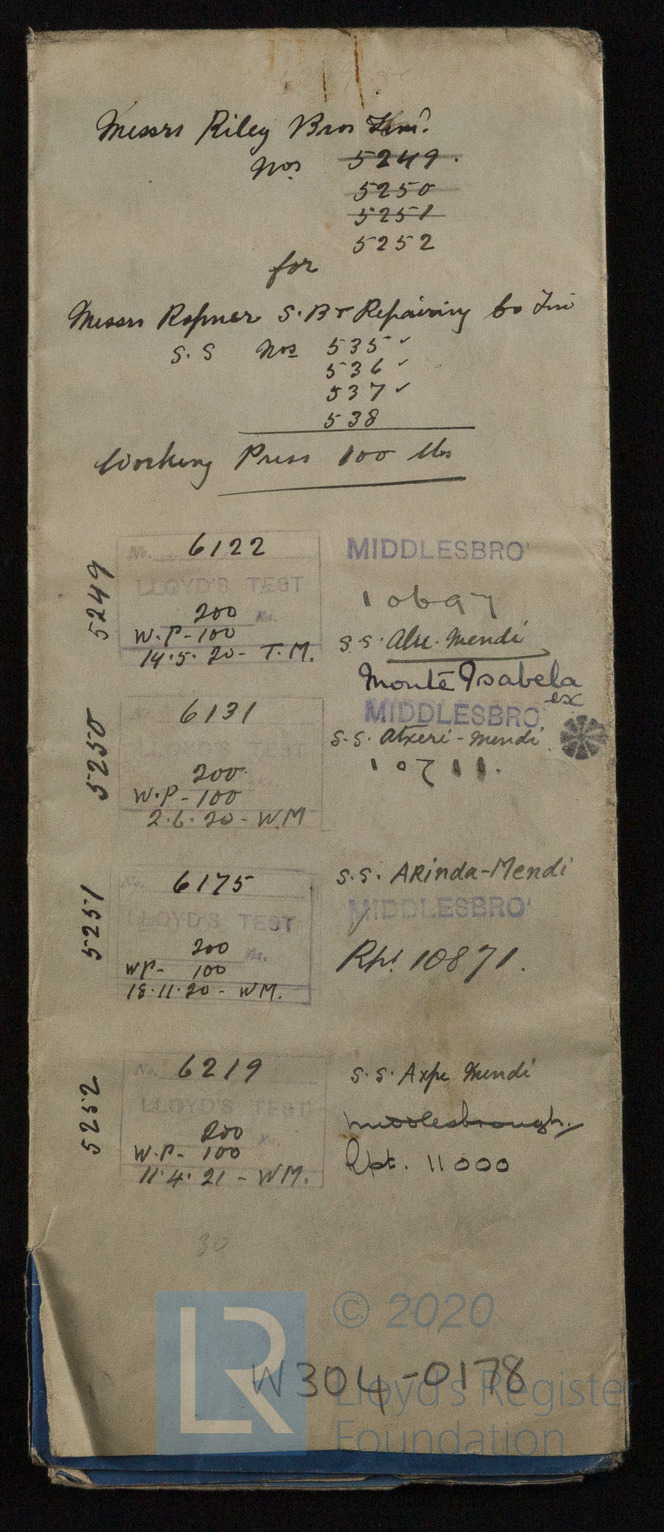 Messrs Riley Bros Limd.
Nos 5249.
5250
5251
5252
for
Messrs Ropner S.B & Repairing Co Lim
S.S Nos 535 ✓
536 ✓
537 ✓
538
Working Press 100 lbs
5249
No. 6122
LLOYD'S TEST
200 lbs.
W.P-100
14.5.20- T.M.
MIDDLESBRO'
10697
S.S. Alu-Mendi
Monte Isabela
ex
5250
No. 6131
LLOYD'S TEST
200
W.P-100
2.6.20-W.M
MIDDLESBRO'
S.S. Atxeri-Mendi
10711.
5251
No. 6175
LLOYD'S TEST
200 lbs.
WP- 100
18.11.20- WM.
S.S. ARinda-Mendi
MIDDLESBRO'
Rpt 10871.
5252
No. 6219
LLOYD'S TEST
200
W.P- 100
11.4.21-WM.
S.S. Axpe Mendi
Middlesbrough.
Rpt. 11000
30
© 2020
LR
W304-0178
Lloyd's Register
Foundation